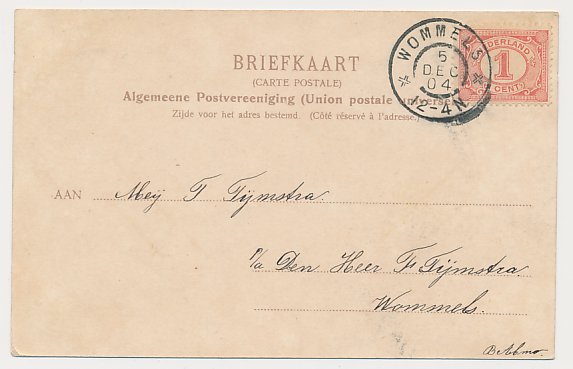 WOMMELS
5
DEC
04
12-4N
NEDERLAND
1
CENT
BRIEFKAART
(CARTE POSTALE)
Algemeene Postvereeniging (Union postale universelle)
Zijde voor het adres bestemd. (Côté réservé à l'adresse.)
AAN Mej T Tijmstra.
P/a Den Heer F Tijmstra
Wommels.